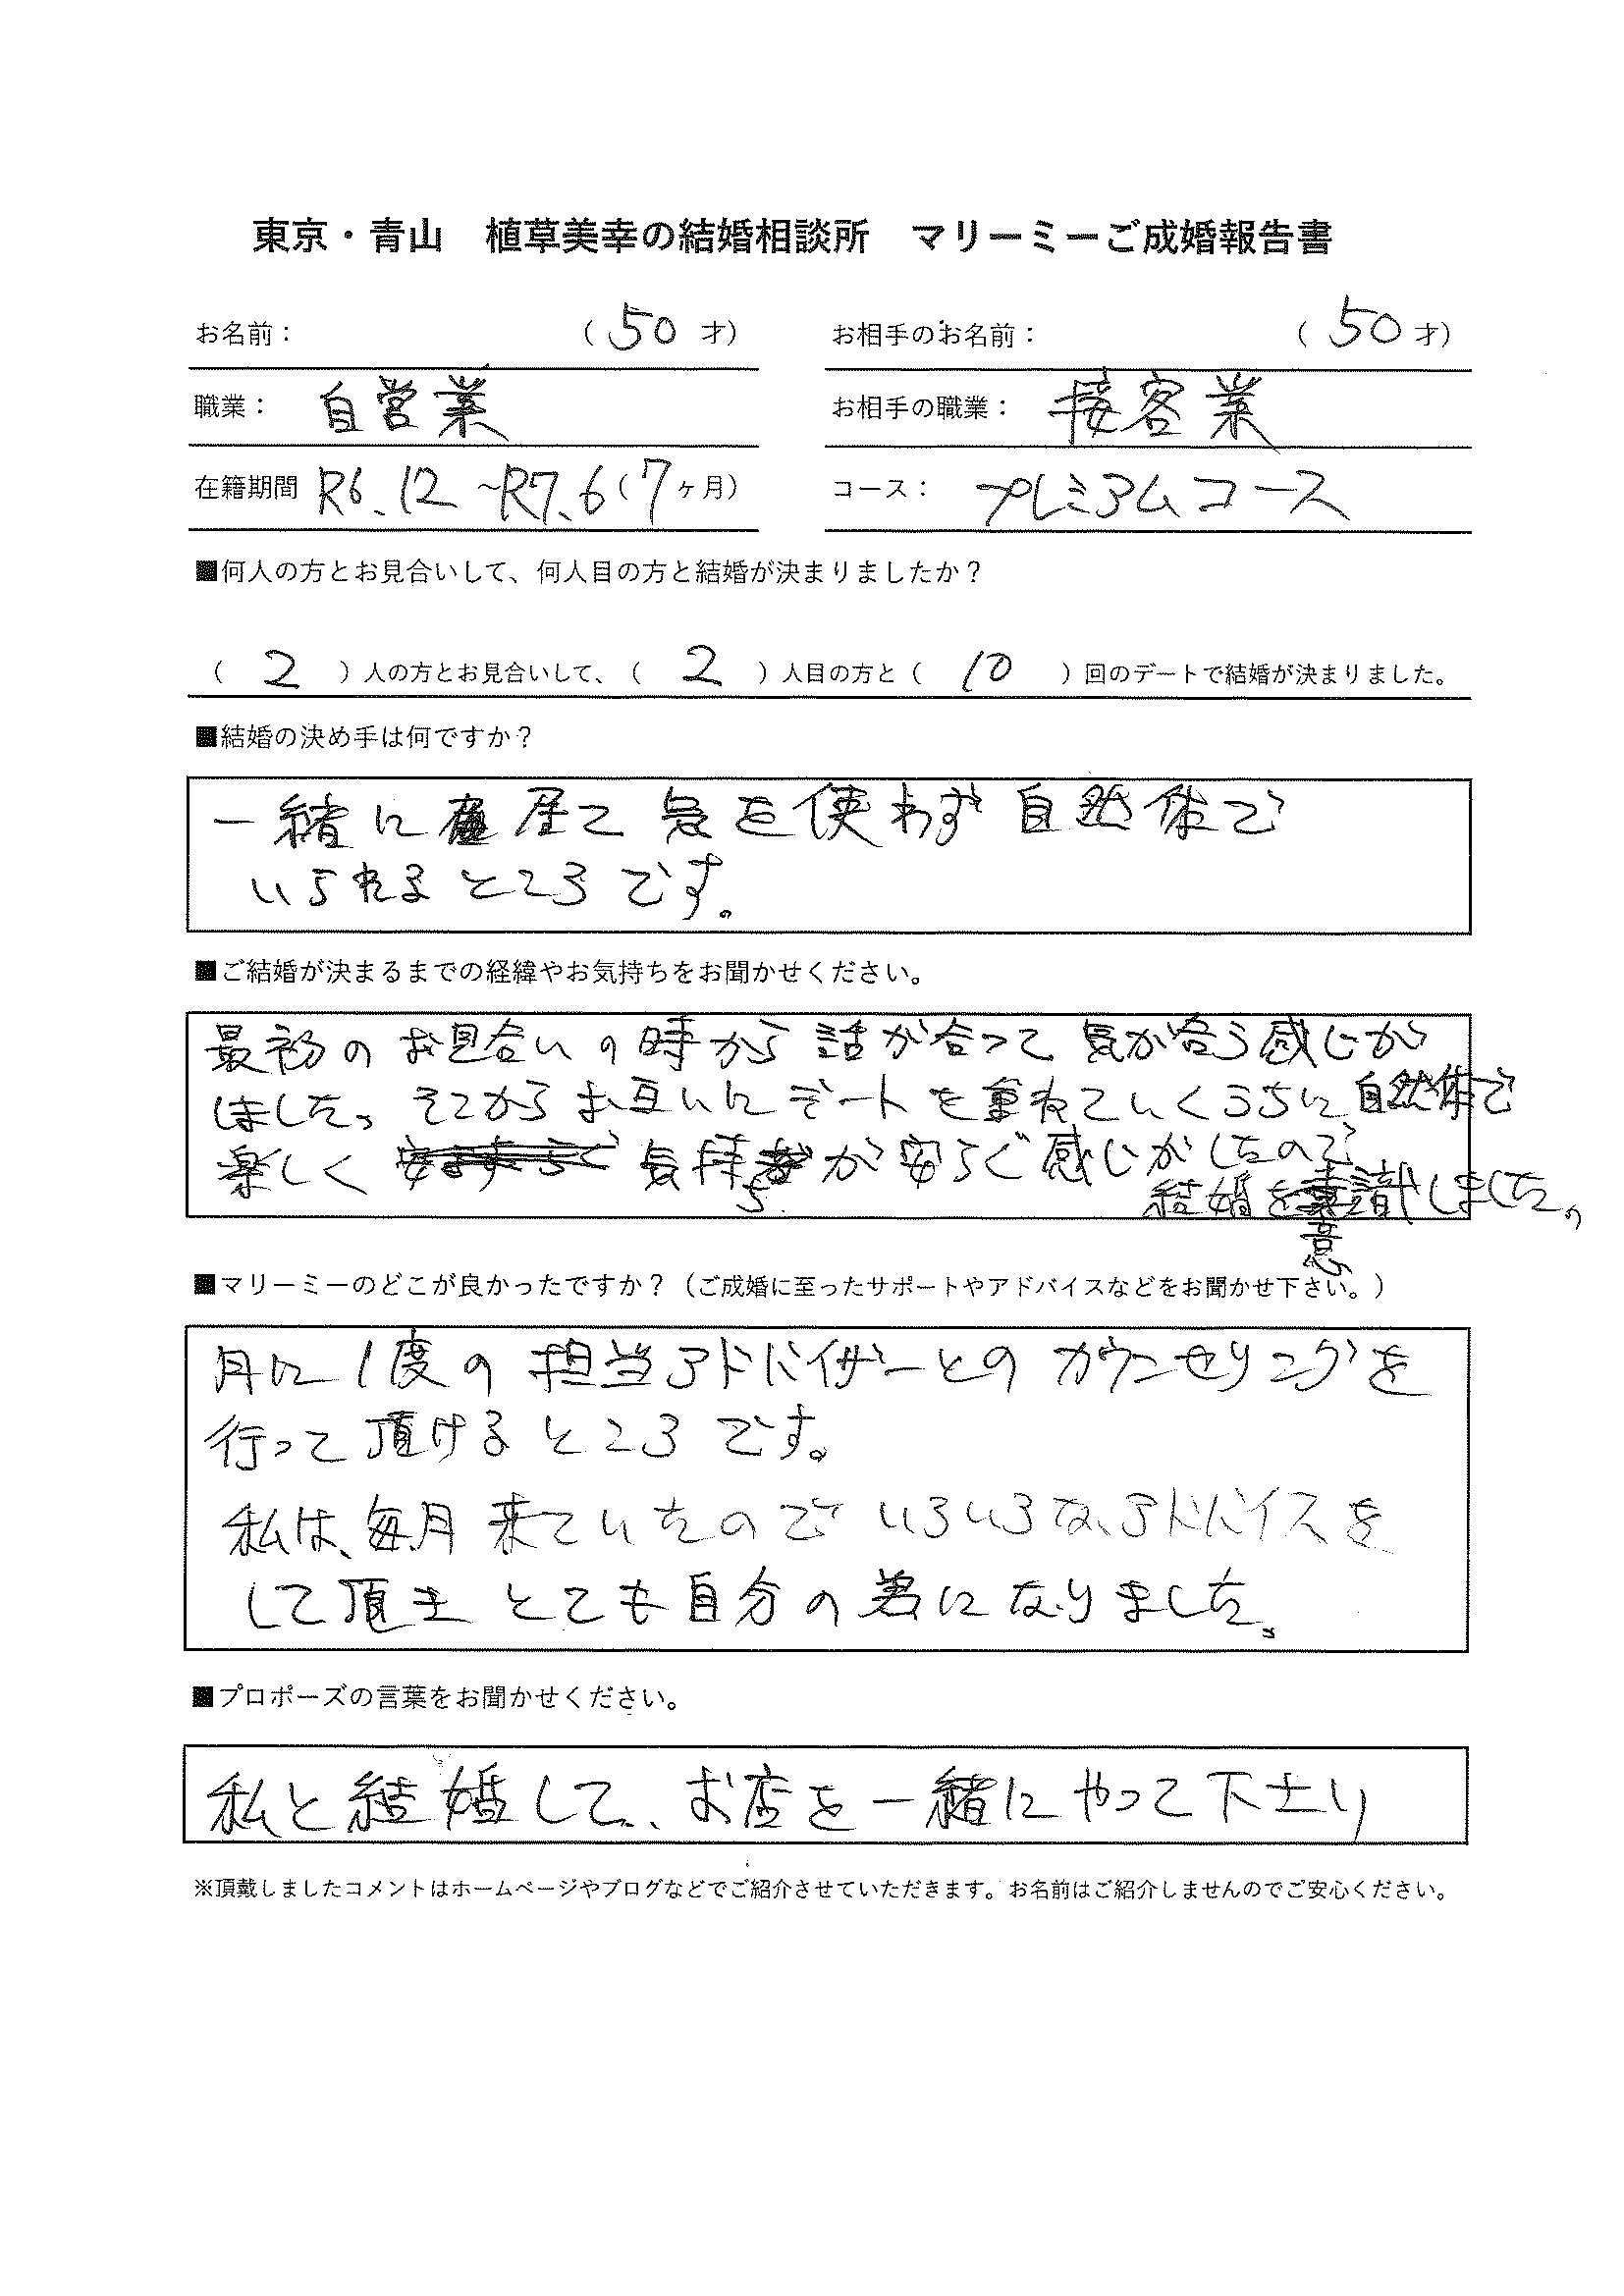 東京・青山　植草美幸の結婚相談所　マリーミーご成婚報告書
お名前：　（50才）　お相手のお名前：　（50才）
職業：自営業　お相手の職業：接客業
在籍期間 R6.12～R7.6（7ヶ月）　コース：プレミアムコース
■何人の方とお見合いして、何人目の方と結婚が決まりましたか？
（2）人の方とお見合いして、（2）人目の方と（10）回のデートで結婚が決まりました。
■結婚の決め手は何ですか？
一緒に居て気を使わず自然体で
いられるところです。
■ご結婚が決まるまでの経緯やお気持ちをお聞かせください。
最初のお見合いの時から話が合って気が合う感じが
しました。そこからお互いにデートを重ねていくうちに自然体で
楽しく気持ちが安らぐ感じがしたので
結婚を意識しました。
■マリーミーのどこが良かったですか？（ご成婚に至ったサポートやアドバイスなどをお聞かせ下さい。）
月に1度の担当アドバイザーとのカウンセリングを
行って頂けるところです。
私は、毎月来ていたのでいろいろなアドバイスを
して頂きとても自分の為になりました。
■プロポーズの言葉をお聞かせください。
私と結婚して、お店を一緒にやって下さい
※頂戴しましたコメントはホームページやブログなどでご紹介させていただきます。お名前はご紹介しませんのでご安心ください。